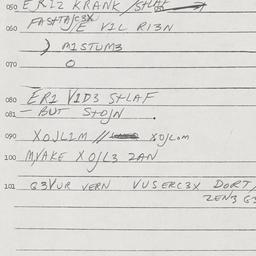 050 ERIZ KRANK /
FASTAJC3X
060 J/E VIL RI3N
) MISTUM3
070 O
080 ERI VID3 STLAF
081 - BUT STOJN .
090 XOJLIM // XOJLOM
100 MYAKE XOJL3 ZAN
101 G3VUR VERN VUSERC3X DORT/
ZEN3 G3